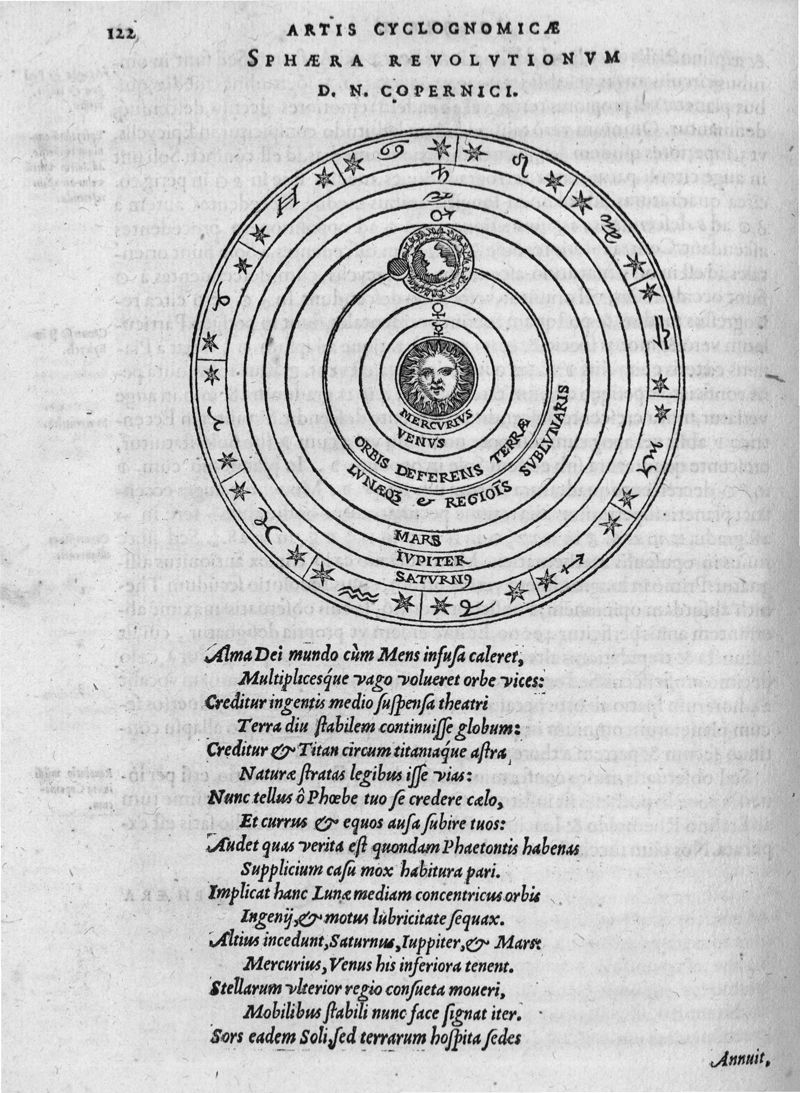 122
ARTIS CYCLOGNOMICÆ
SPHÆRA REVOLVTIONVM
D. N. COPERNICI.
MERCVRIVS
VENVS
ORBIS DEFERENS TERRÆ
LVNÆQꝫ & REGIOĪS SVBLVNARIS
MARS
IVPITER
SATVRNꝰ
Alma Dei mundo cùm Mens infuſa caleret,
Multipliceſq́ue vago volueret orbe vices:
Creditur ingentis medio ſuſpenſa theatri
Terra diu ſtabilem continuiſſe globum:
Creditur & Titan circum titaniaque aſtra,
Naturæ ſtratas legibus iſſe vias:
Nunc tellus ô Phœbe tuo ſe credere cælo,
Et currus & equos auſa ſubire tuos:
Audet quas verita eſt quondam Phaetontis habenas
Supplicium caſu mox habitura pari.
Implicat hanc Lunæ mediam concentricus orbis
Ingenij, & motus lubricitate ſequax.
Altius incedunt, Saturnus, Iuppiter, & Mars:
Mercurius, Venus his inferiora tenent.
Stellarum vlterior regio conſueta moueri,
Mobilibus ſtabili nunc face ſignat iter.
Sors eadem Soli, ſed terrarum hoſpita ſedes
Annuit,